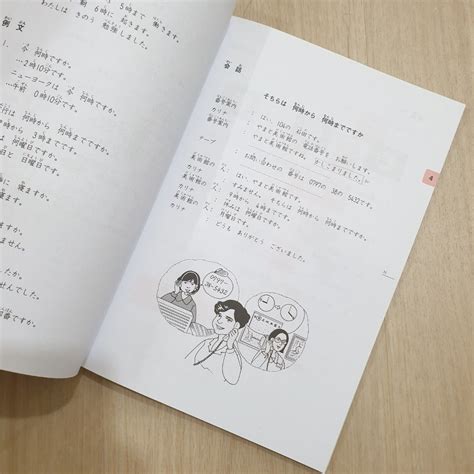 ５時まで 働きます。
朝 ６時に 起きます。
わたしは きのう 勉強しました。
例文
今 何時ですか。
…２時10分です。
ニューヨークは 今 何時ですか。
…午前 ０時10分です。
何時から
３時までです。
何曜日ですか。
日曜日です。
寝ますか。
寝ます。
ません。
たか。
せんでした。
何番ですか。
会話
そちらは 何時から 何時までですか
番号案内 : はい、104の
カリナ : やまと美術館の 電話番号を お願いします。
番号案内 : やまと美術館ですね。かしこまりました。
テープ : お問い合わせの 番号は 0797の 38の 5432です。
美術館の人 : はい、やまと美術館です。
カリナ : すみません。そちらは 何時から 何時までですか。
美術館の人 : ９時から ４時までです。
カリナ : 休みは 何曜日ですか。
美術館の人 : 月曜日です。
カリナ : どうも ありがとう ございました。
4
0797-
38-5432